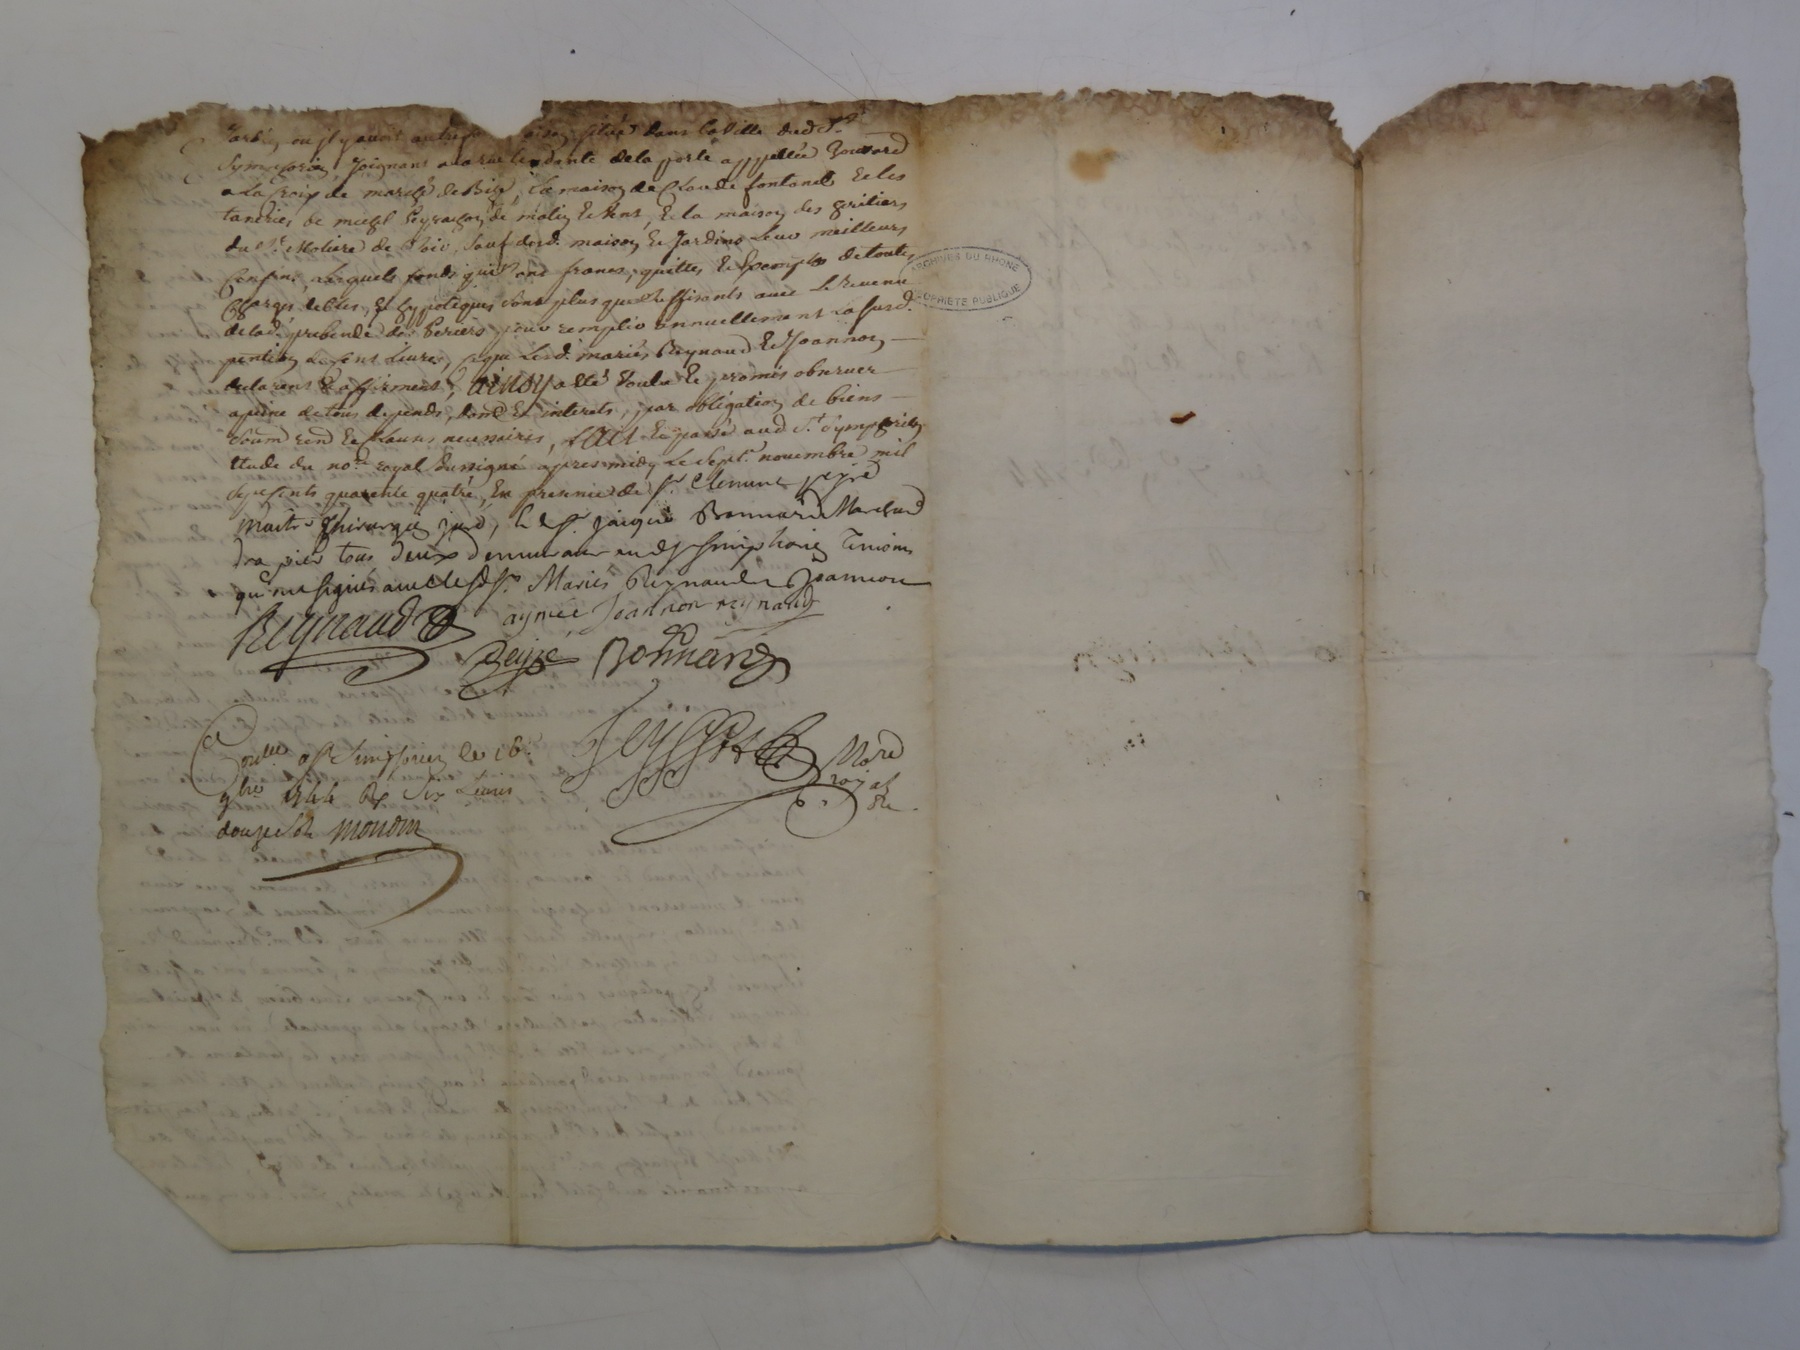 Jardin ou il y avoit autrefois maison situé dans la Ville dud St
Symphorien, Joignant a la rue tendante de la porte appellée
a la Croix de marché de Bize, la maison de Claude fontanel Et les
taneries de mre Peyrachon de matin Et vent, Et la maison des heritiers
du Sr. Moliere de soir, sauf desd. maison Et Jardins leur meilleurs
Confins, lesquels fonds qui sont francs, quittes Et Exempts de toutes
Charges debtes, Et hypoteques sont plus que suffisants avec le Revenu
de lad. prebende des periers pour remplir annuellement la susd.
pention de cent Livres, ce que Lesd. mariés Reynaud Et Joannon
declarent Et affirment, Ainsy a Eté Voulu Et promis observer
a peine de tous depends, dom. Et interets, par obligation de biens
soum renon Et clauses necessaires, fait Et passé aud St. Symphorien
Etude du nore. royal soussigné apres midy Le Sept.e novembre mil
Sept Cents quarente quatre, En presence de sr. Clement peyré
Maitre Chirurgien juré, Et de sr. jacque Bonnard Marchand
drapier tous deux demeurant aud St Simphorien Temoins
qui ont signés avec lesd srs. Mariés Reynaud et Joannon
Reynaud aymée Jeannon reynaud
Peyré Bonnard
Conllé a St Simphorien le 16e.
9bre 1744 R Six Livres
douze sols monom